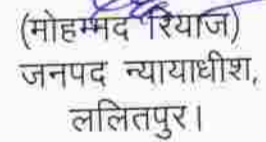 (मोहम्मद रियाज)
जनपद न्यायाधीश,
ललितपुर।